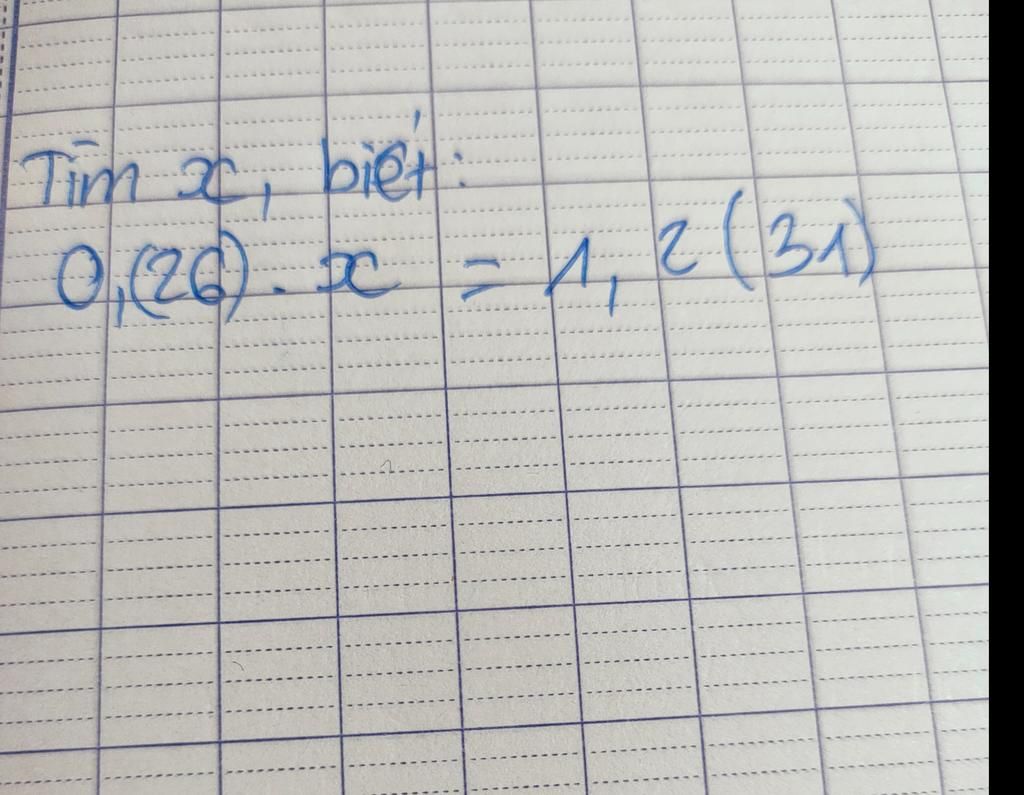 Tìm x, biết:
0,(26) . x = 1,2(31)